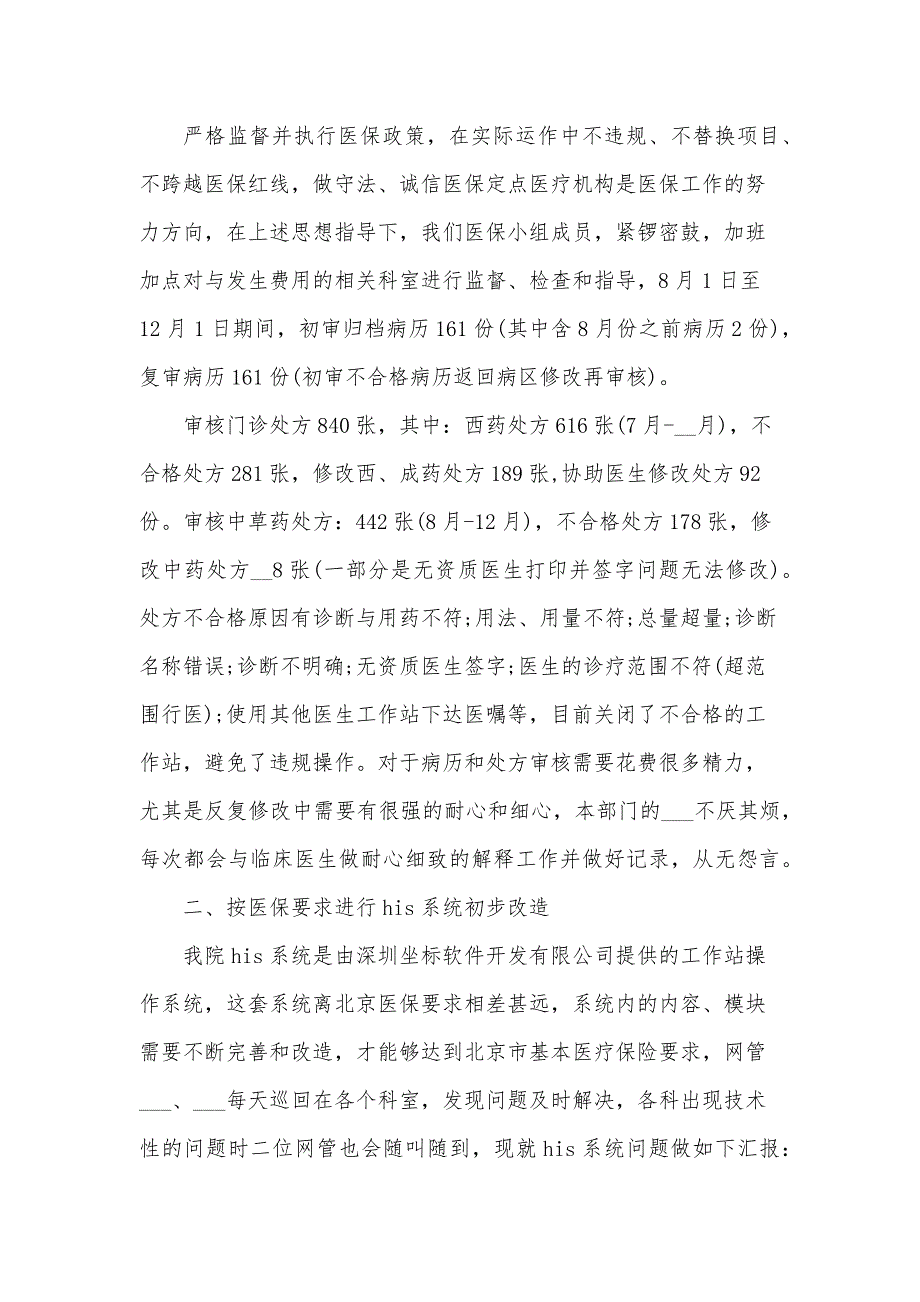 严格监督并执行医保政策，在实际运作中不违规、不替换项目、
不跨越医保红线，做守法、诚信医保定点医疗机构是医保工作的努
力方向，在上述思想指导下，我们医保小组成员，紧锣密鼓，加班
加点对与发生费用的相关科室进行监督、检查和指导，8 月 1 日至
12 月 1 日期间，初审归档病历 161 份(其中含 8 月份之前病历 2 份)，
复审病历 161 份(初审不合格病历返回病区修改再审核)。
审核门诊处方 840 张，其中：西药处方 616 张(7 月-__月)，不
合格处方 281 张，修改西、成药处方 189 张,协助医生修改处方 92
份。审核中草药处方：442 张(8 月-12 月)，不合格处方 178 张，修
改中药处方__8 张(一部分是无资质医生打印并签字问题无法修改)。
处方不合格原因有诊断与用药不符;用法、用量不符;总量超量;诊断
名称错误;诊断不明确;无资质医生签字;医生的诊疗范围不符(超范
围行医);使用其他医生工作站下达医嘱等，目前关闭了不合格的工
作站，避免了违规操作。对于病历和处方审核需要花费很多精力，
尤其是反复修改中需要有很强的耐心和细心，本部门的___不厌其烦，
每次都会与临床医生做耐心细致的解释工作并做好记录，从无怨言。
二、按医保要求进行 his 系统初步改造
我院 his 系统是由深圳坐标软件开发有限公司提供的工作站操
作系统，这套系统离北京医保要求相差甚远，系统内的内容、模块
需要不断完善和改造，才能够达到北京市基本医疗保险要求，网管
___、___每天巡回在各个科室，发现问题及时解决，各科出现技术
性的问题时二位网管也会随叫随到，现就 his 系统问题做如下汇报：